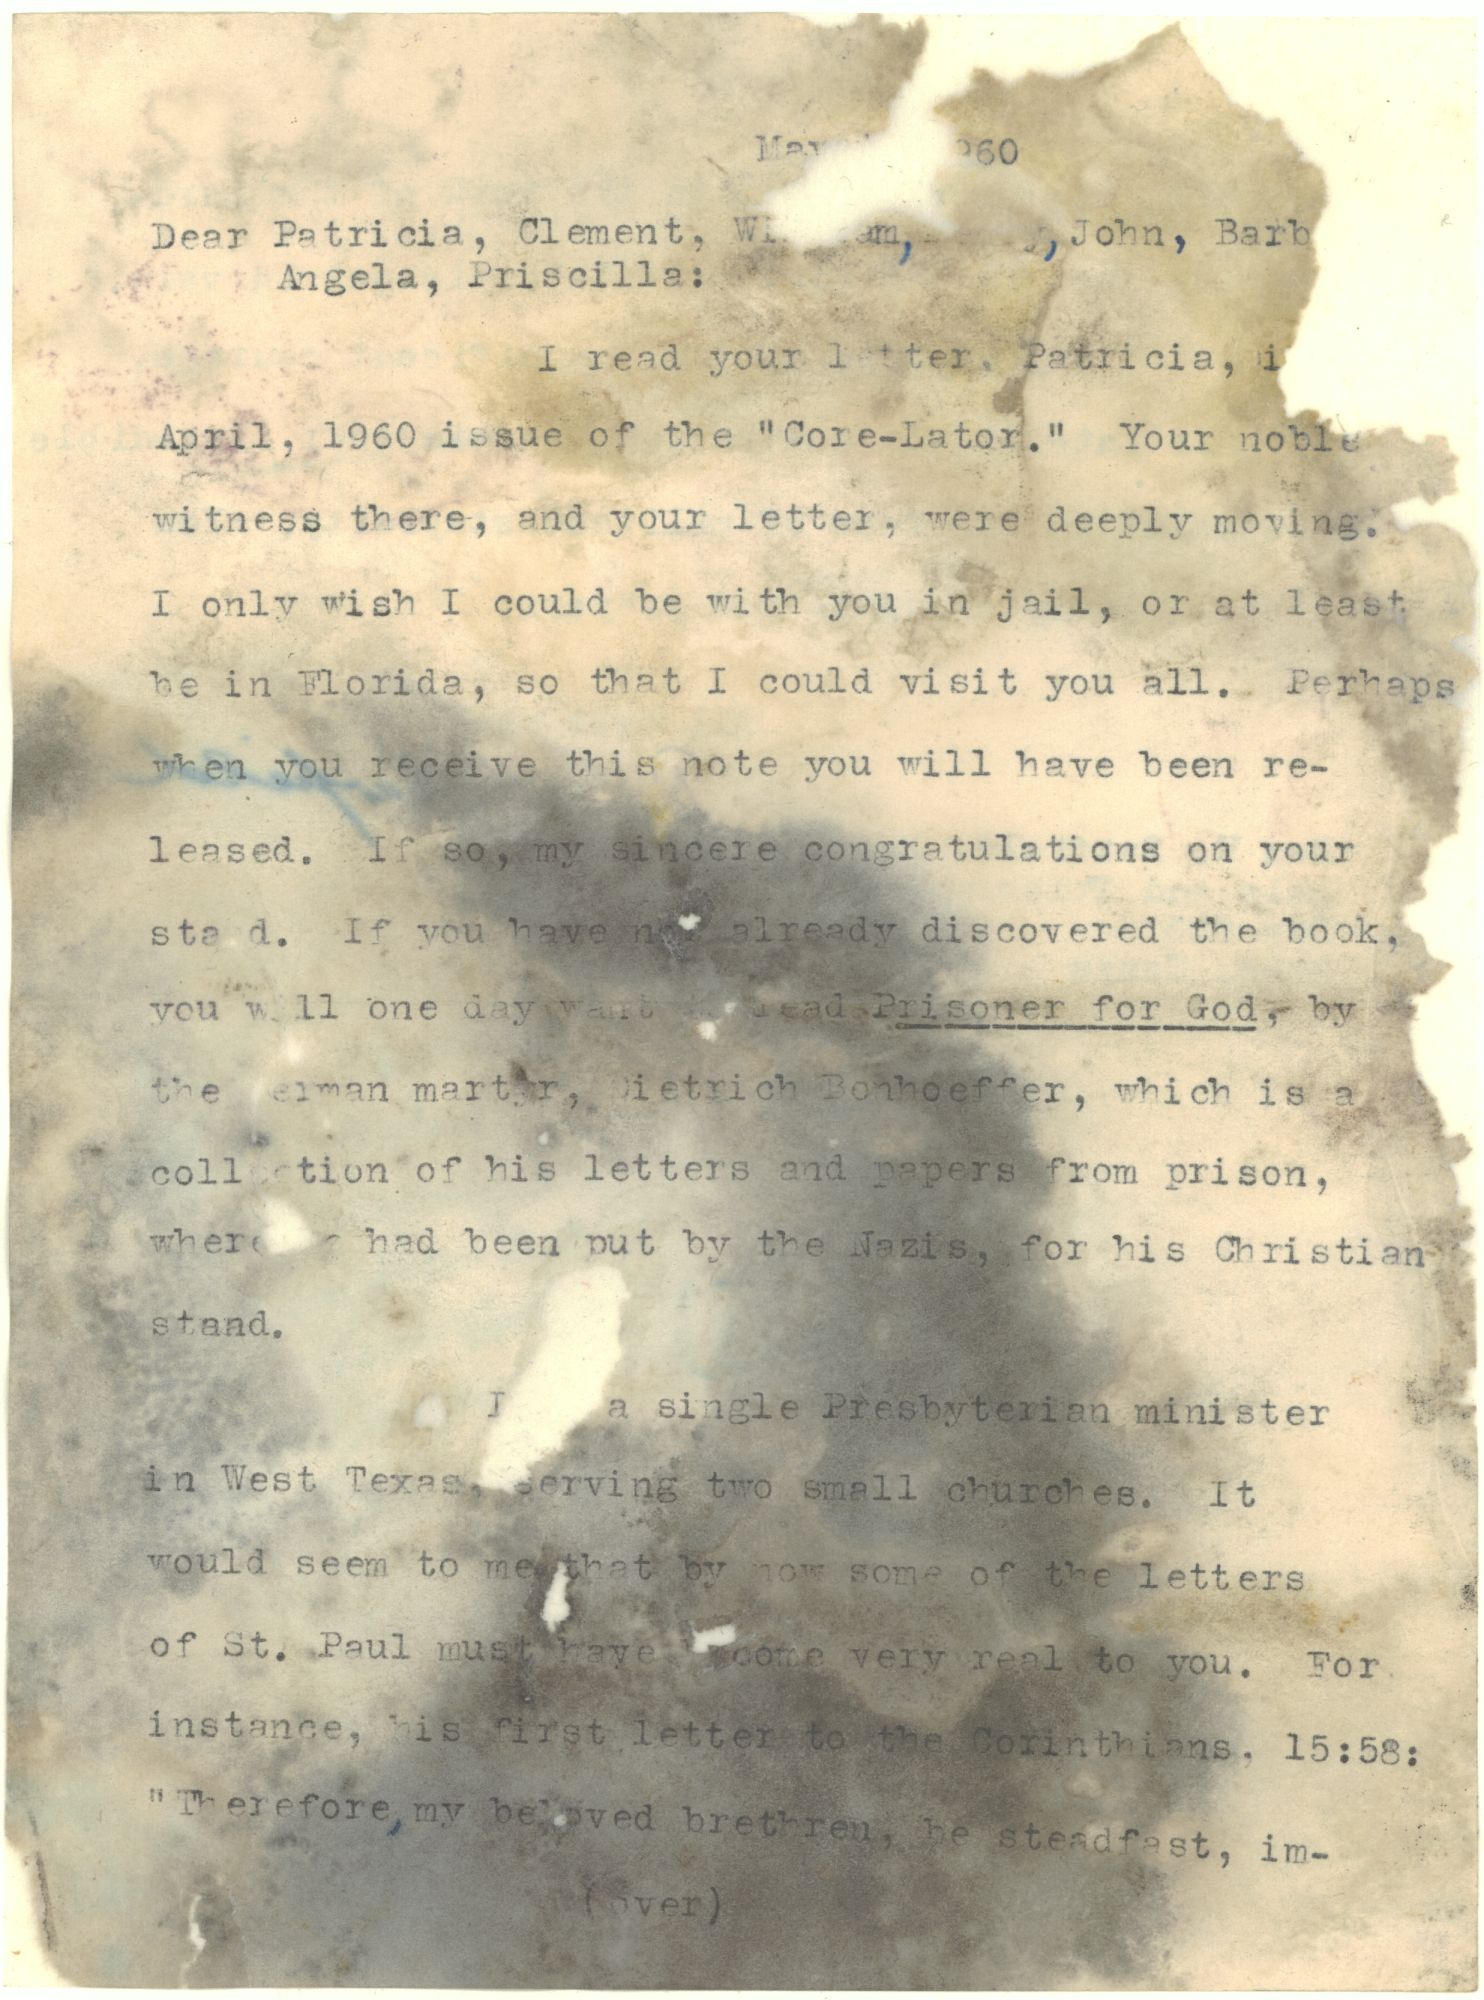 May 1960
Dear Patricia, Clement, John,
Angela, Priscilla:
I read your letter, Patricia,
April, 1960 issue of the "Core-Lator." Your noble
witness there, and your letter, were deeply moving.
I only wish I could be with you in jail, or at least
be in Florida, so that I could visit you all. Perhaps
when you receive this note you will have been re-
leased. If so, my sincere congratulations on your
stand. If you have not already discovered the book,
you will one day want read Prisoner for God, by
the German martyr, Dietrich Bonhoeffer, which is a
collection of his letters and papers from prison,
where had been put by the Nazis, for his Christian
stand.
I a single Presbyterian minister
in West Texas, serving two small churches. It
would seem to me that by now some of the letters
of St. Paul must have become very real to you. For
instance, his first letter to the Corinthians, 15:58:
"Therefore, my beloved brethren, be steadfast, im-
(over)